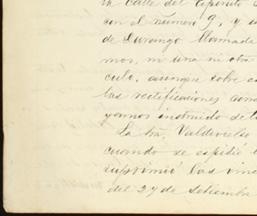 la calle del
con el número 9, y
de Durango llamada
mos, ni una ni otra
culo, aunque sobre
las rectificaciones
instruido de
La Sra. Valdivielso
cuando se espidió
suprimió los vin
del 27 de Setiembre